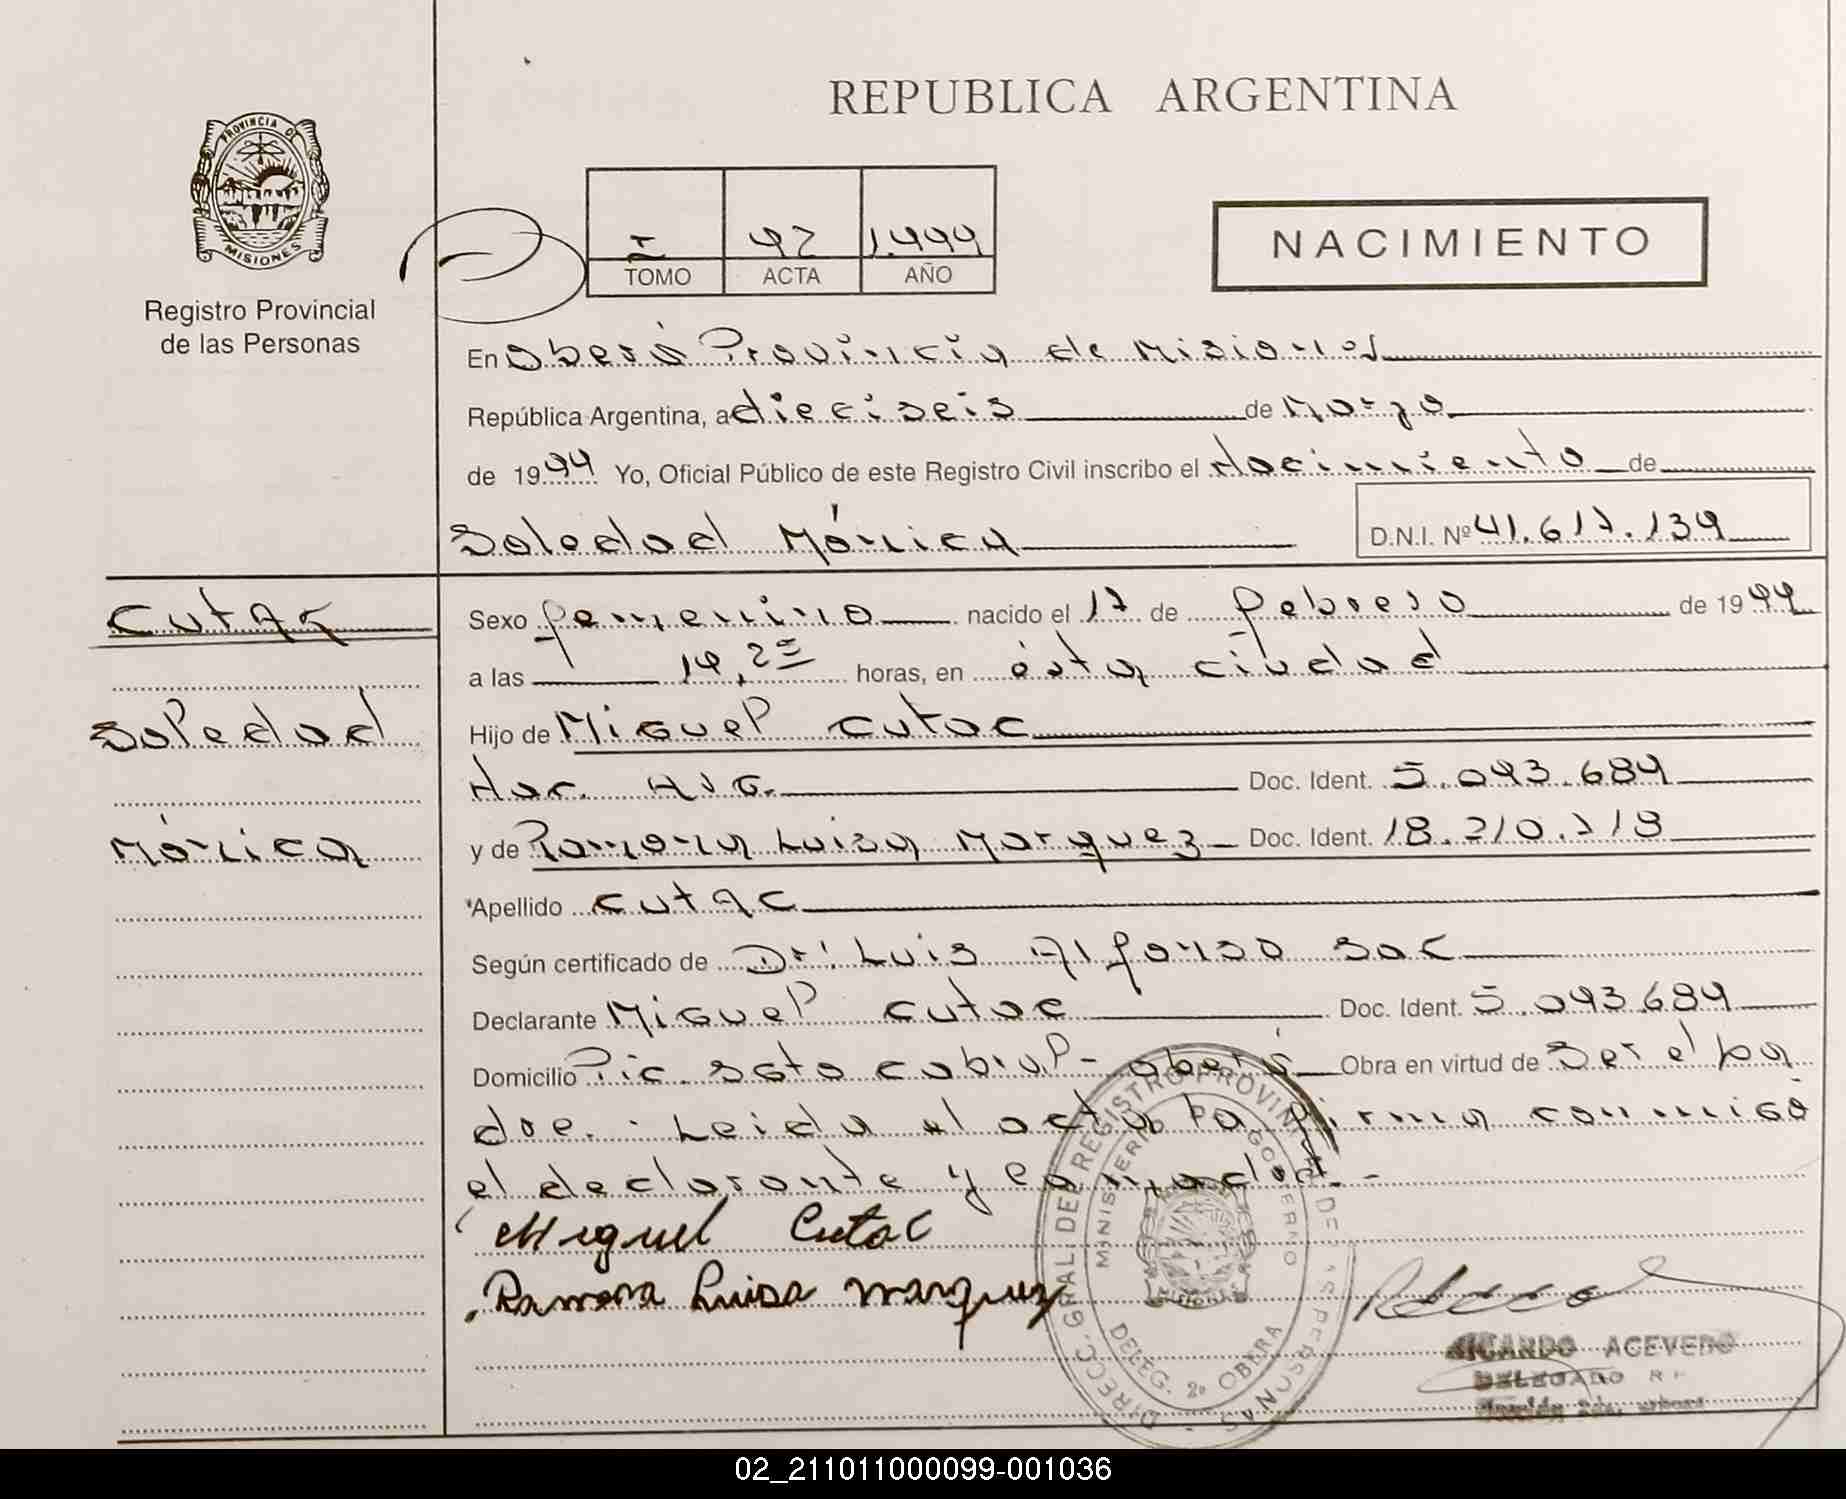 REPUBLICA ARGENTINA
PROVINCIA DE
MISIONES
Registro Provincial
de las Personas
I 92 1.999
TOMO ACTA AÑO
NACIMIENTO
En Oberá Provincia de Misiones
República Argentina, a dieciseis de Marzo
de 1999 Yo, Oficial Público de este Registro Civil inscribo el Nacimiento de
Soledad Mónica D.N.I. Nº 41.617.139
CUTAC
Soledad
Mónica
Sexo femenino nacido el 17 de febrero de 1999
a las 14,25 horas, en ésta ciudad
Hijo de Miguel Cutac
Nac. Arg. Doc. Ident. 5.093.689
y de Ramona Luisa Marquez Doc. Ident. 18.210.718
Apellido CUTAC
Según certificado de Dr. Luis Alfonso Sac
Declarante Miguel Cutac Doc. Ident. 5.093.689
Domicilio Pic. Soto Cabral - Oberá Obra en virtud de Ser el pa
dre. - Leida el acta la firma conmigo
el declarante y la madre. -
Miguel Cutac
Ramona Luisa Marquez
DIRECC. GRAL. DEL REGISTRO PROVINCIAL DE LAS PERSONAS
MINISTERIO DE GOBIERNO
DELEG. 2º OBERA
RICARDO ACEVEDO
DELEGADO R P
Sección 2da. urbana
02_211011000099-001036